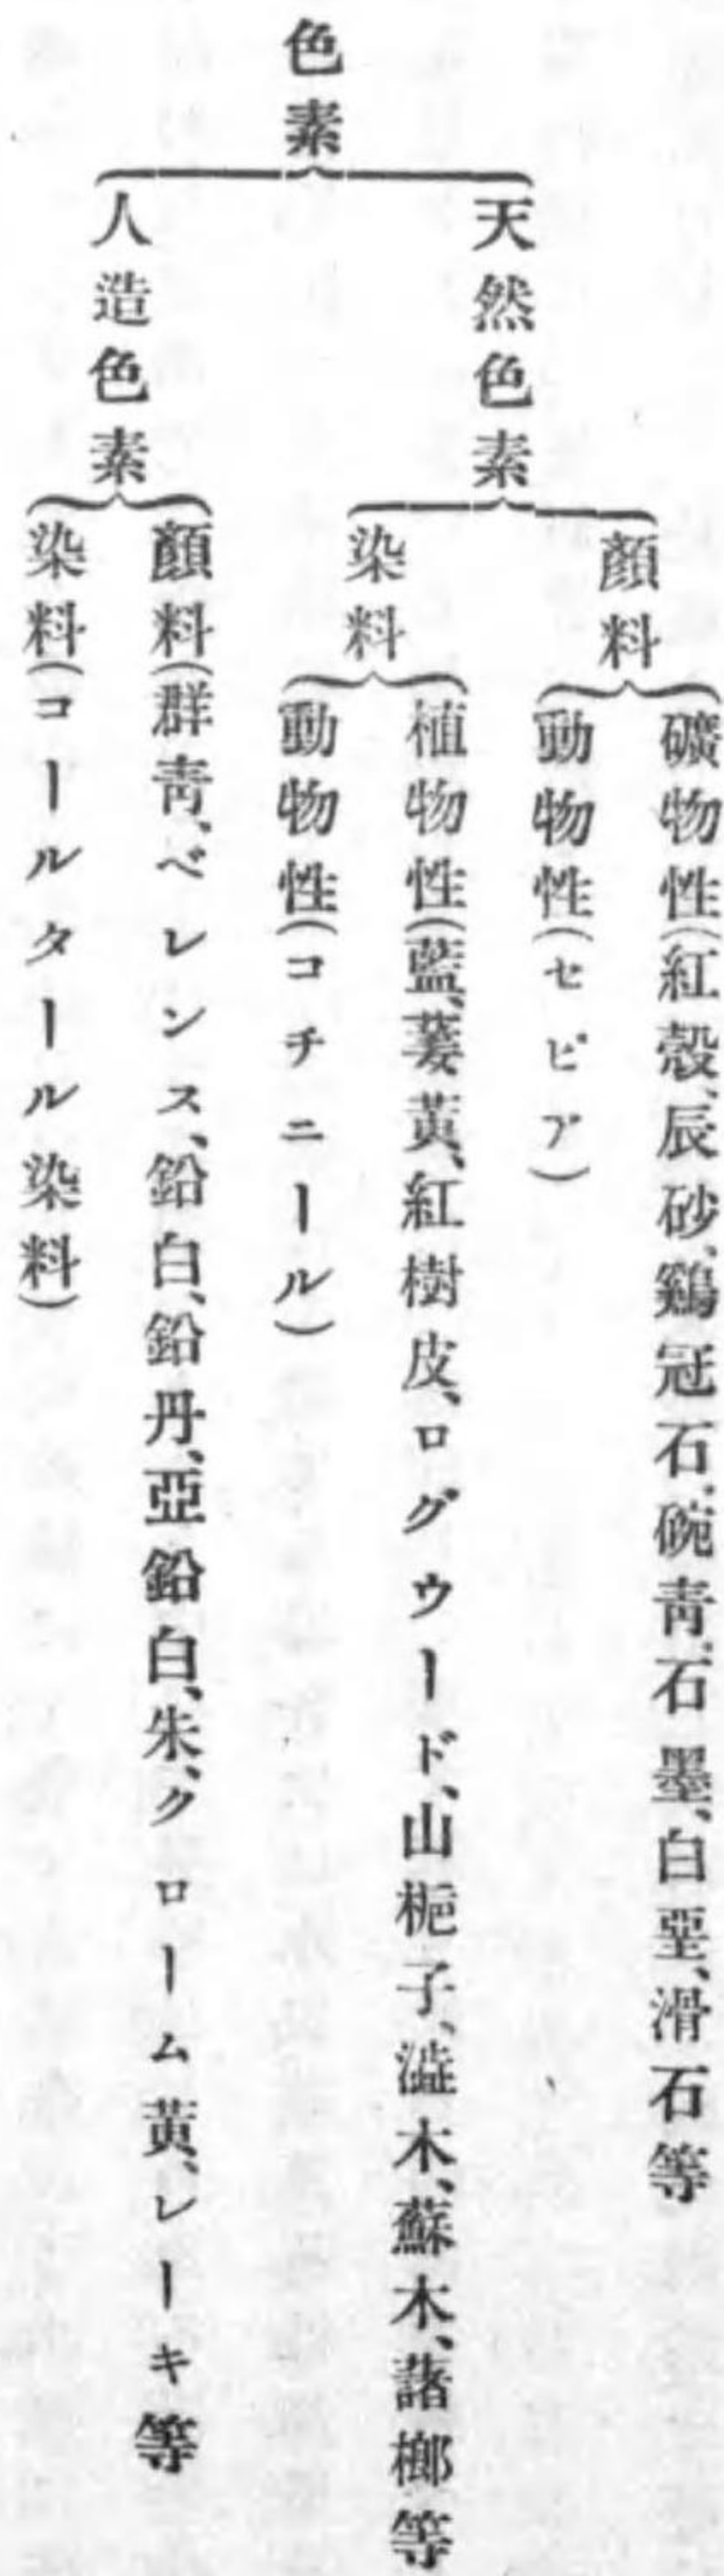 色素
天然色素
顏料
礦物性(紅殼、辰砂、鷄冠石、碗靑、石墨、白堊、滑石等
動物性(セピア)
染料
植物性(藍、蓼黃、紅樹皮、ログウード、山梔子、澁木、蘇木、藷榔等
動物性(コチニール)
人造色素
顏料(群靑、ベレンス、鉛白、鉛丹、亞鉛白、朱、クローム黃、レーキ等
染料(コールタール染料)